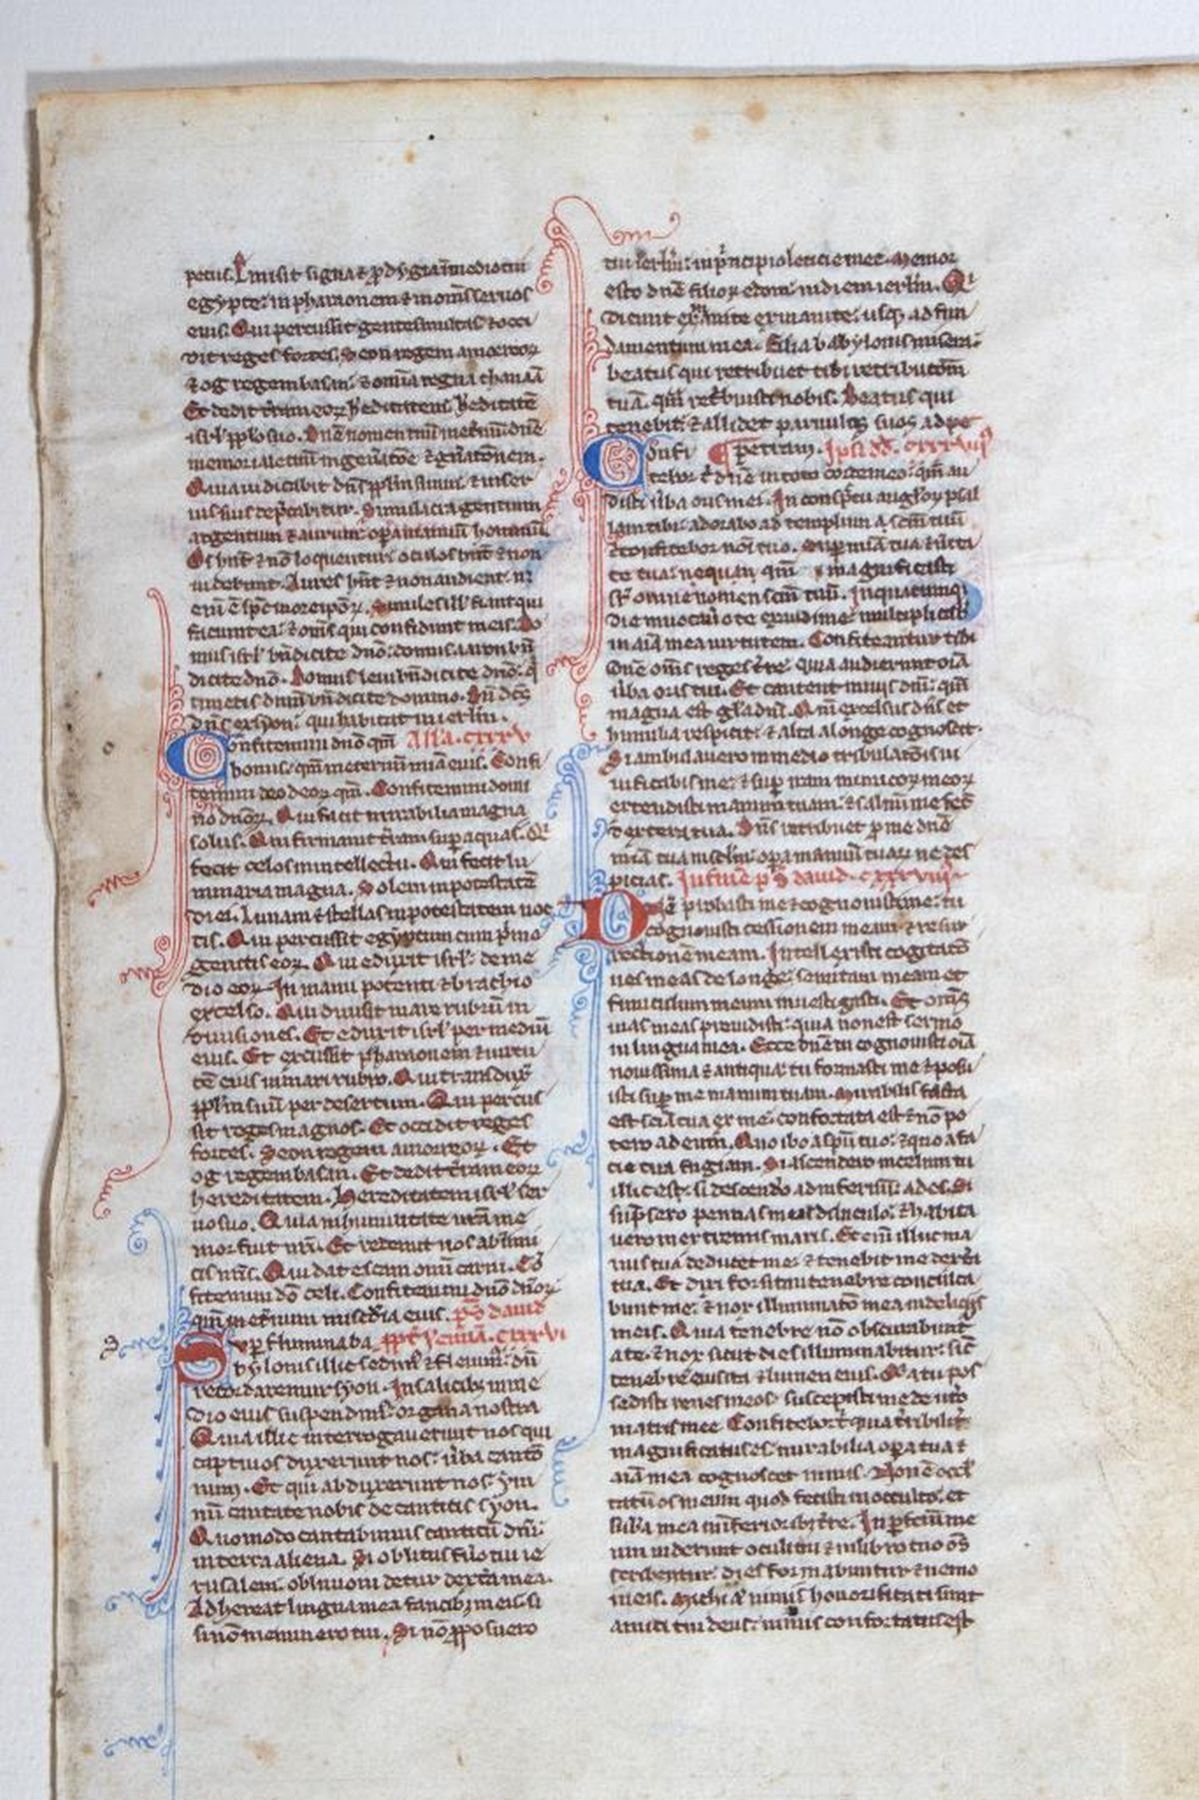 pecus. Emisit signa ⁊ p̄dygia ī medio tui
egypte: in pharaonem ⁊ in om̄s seruos
eius. Qui percussit gentes multas ⁊ occi
dit reges fortes. Seon regem amoreoꝝ
⁊ og regem basan: ⁊ om̄ia regna chanaā
Et dedit t̄ram eoꝝ hereditatem: hereditatē
isrl̓ pp̄lo suo. Dn̄e nomen tuū in et̓nū: dn̄e
memoriale tuū in gen̓atōe ⁊ gn̓atōnem.
Quia iudicabit dn̄s pp̄lm suum: ⁊ in ser
uis suis dep̄cabitur. Simulacra gentium
argentum ⁊ aurum: op̄a manuū hominū.
Os hn̄t ⁊ nō loquentur: oculos hn̄t ⁊ non
uidebunt. Aures hn̄t ⁊ non audient: n̄
eni ē sp̄c in ore ipoꝝ. Similes ill̓ fiant qui
faciunt ea: ⁊ om̄s qui confidunt in eis. Do
mus isrl̓ bn̄dicite dn̄o: domus aaron bn̄
dicite dn̄o. Domus leui bn̄dicite dn̄o: q̄
timetis dnm̄ bn̄dicite domino. Bn̄ dc̄s
dn̄s ex syon: qui habitat in ierlm̄.
Confitemini dn̄o qm̄ All̓a. cxxxv
bonus: qm̄ in eternū mia eius. Confi
temini deo deoꝝ qm̄. Confitemini domi
no dn̄oꝝ. Qui facit mirabilia magna
solus. Qui firmauit t̄ram sup̄ aquas. Q̄
fecit celos in intellectu. Qui fecit lu
minaria magna. Solem in potestatē
diei. Lunam ⁊ stellas in potestatem noc
tis. Qui percussit egyptum cum p̄mo
genitis eoꝝ. Qui eduxit isrl̓: de me
dio eoꝝ. In manu potenti ⁊ brachio
excelso. Qui diuisit mare rubrū in
diuisiones. Et eduxit isrl̓ per mediū
eius. Et excussit pharaonem ⁊ uirtu
tē eius in mari rubro. Qui transdux̓
pp̄lm suū per desertum. Qui percus
sit reges magnos. Et occidit reges
fortes. Seon regem amoreoꝝ. Et
og regem basan. Et dedit t̄ram eoꝝ
hereditatem. Hereditatem isrl̓ ser
uo suo. Quia in humilitate nr̄a me
mor fuit nr̄i. Et redemit nos ab inimi
cis nr̄is. Qui dat escam omī carni. Cō
fitemini dō celi. Confitemini dn̄o dn̄oꝝ
qm̄ in et̓num mis̄dia eius. ps̄ dauid
Sup̄ flumina ba cxxxvi
bylonis illic sedim̓ ⁊ fleuim̓: dū
recordaremur syon. In salicibꝫ in me
dio eius: suspendim̓ organa nostra
Quia illic interrogauerunt nos qui
captiuos duxerunt nos: u̓ba cantō
num. Et qui abduxerunt nos: ym
nū cantate nobis de canticis syon.
Quomodo cantabimus canticū dn̄i:
in terra aliena. Si oblitus fu̓o tui ie
rusalem: obliuioni detur dext̓a mea.
Adhereat lingua mea faucibꝫ meis: si
si nō meminero tui. Si nō pp̄osuero
tui ierlm̄: in p̄ncipio leticie mee. Memor
esto dn̄e filioꝝ edom: in diem ierlm̄. Q̄
dicunt exinanite exinanite: usqꝫ ad fun
damentum in ea. Filia babylonis misera:
beatus qui retribuet tibi retributōm
tuā: qm̄ ret̓buisti nobis. Beatus qui
tenebit: ⁊ allidet paruulos suos ad pe
Confi ¶ petram. Ip̄i dd̄. cxxxvii
tebor t̓ dn̄e in toto corde meo: qm̄ au
disti u̓ba oris mei. In conspc̄u angl̓oꝝ psal
lam tibi: adorabo ad templum scm̄ tuū
⁊ confitebor noī tuo. Sup̄ mia tua ⁊ u̓ita
te tua: qm̄ magnificasti
sr̄ omne nomen scm̄ tuū. In quacumqꝫ
die inuocau̓o te exaudi me: multiplicab̓
in aīa mea uirtutem. Confiteantur tibi
dn̄e om̄s reges t̄re: quia audierunt oīa
u̓ba oris tui. Et cantent in uiis dn̄i: qm̄
magna est gl̓a dn̄i. Qm̄ excelsus dn̄s et
humilia respicit: ⁊ alta a longe cognoscit.
Si ambulauero in medio tribulatōis ui
uificabis me: ⁊ sup̄ iram inimicoꝝ meoꝝ
extendisti manum tuam: ⁊ saluū me fec̓
dextera tua. Dn̄s retribuet p̄ me dn̄e
mīa tua in sclm̄: op̄a manuū tuaꝝ ne des
picias. In finē ps̄ dauid. cxxxviii
Dn̄e probasti me ⁊ cognouisti me: tu
cognouisti cessionem meam ⁊ resur
rectionē meam. Intellexisti cogitatō
nes meas de longe: semitam meam et
funiculum meum inuestigasti. Et om̄s
uias meas preuidisti: quia non est sermo
in lingua mea. Ecce dn̄e tu cognouisti oīa
nouissima ⁊ antiqua: tu formasti me ⁊ posu
isti sup̄ me manum tuam. Mirabilis facta
est scīa tua ex me: confortata est ⁊ nō po
tero ad eam. Quo ibo a spū tuo: ⁊ quo a fa
cie tua fugiam. Si ascendero in celum tu
illic es: si descendo ad infernū: ades. Si
sūpsero pennas meas diluculo: ⁊ habita
uero in extremis maris. Et eni illuc ma
nus tua deducet me: ⁊ tenebit me dext̓a
tua. Et dixi forsitan tenebre conculca
bunt me: ⁊ nox illuminatō mea in deliciis
meis. Quia tenebre nō obscurabunt̓
a te: ⁊ nox sicut dies illuminabitur: sic̄
tenebre eius ita ⁊ lumen eius. Q̄a tu pos
sedisti renes meos: suscepisti me de ut̓o
matris mee. Confitebor t̓ quia t̓ribilit̓
magnificatus es: mirabilia op̄a tua ⁊
aīa mea cognoscet nimis. Non ē occl̓
tatū os meum quod fecisti in occulto: et
sub̓a mea in inferioribꝫ t̄re. Inp̄fc̄m me
um uiderunt oculi tui ⁊ in libro tuo om̄s
scribentur: dies formabuntur ⁊ nemo
in eis. Michi aū nimis honorificati sunt
amici tui deus: nimis confortatus est